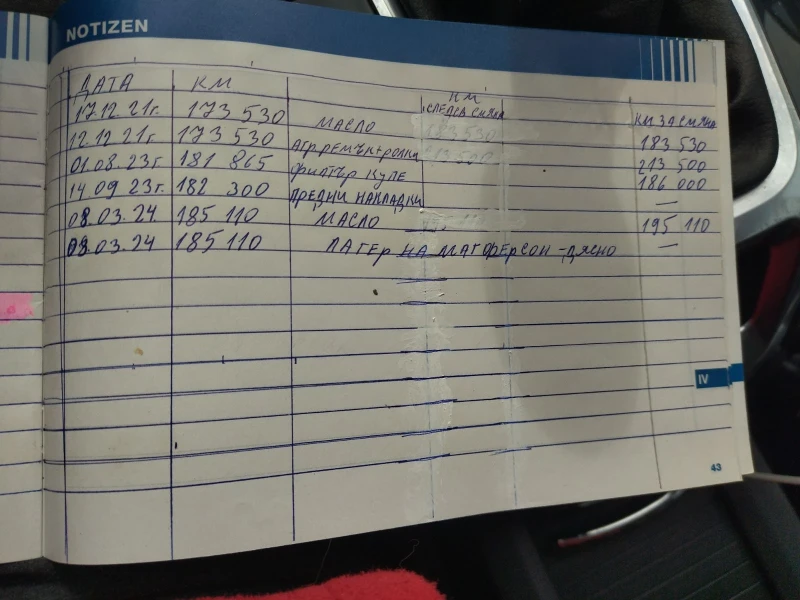 NOTIZEN
ДАТА КМ КМ СЛЕДВ СМЯНА КМ ЗА СМЯНА
17.12 21г. 173 530 МАСЛО 183 530
12.12 21г. 173 530 АГР.РЕМЪК+РОЛКИ 213 500
01.08.23г. 181 865 ФИЛТЪР КУПЕ 186 000
14 09 23г. 182 300 ПРЕДНИ НАКЛАДКИ —
08.03.24 185 110 МАСЛО 195 110
09.03.24 185 110 ЛАГЕР НА МАГФЕРСОН-ДЯСНО —
IV
43